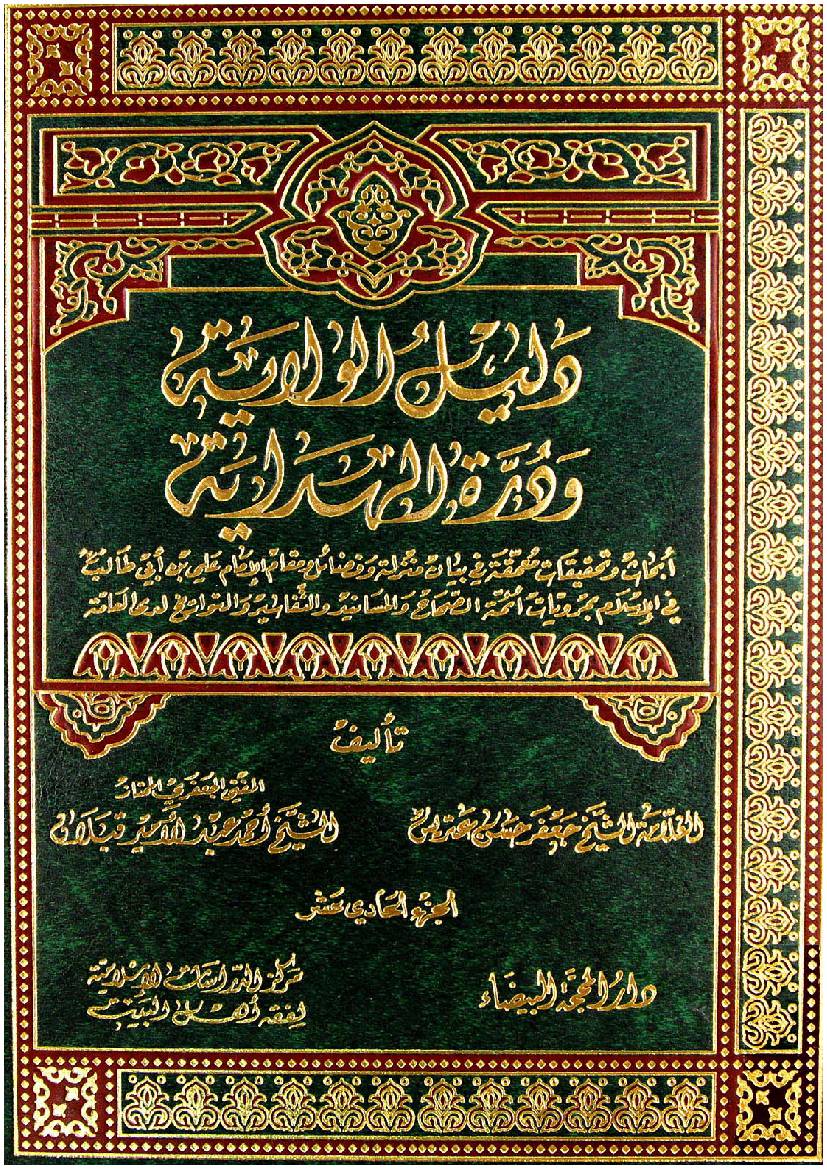 دَليلُ الولاية
وَدُرَّة الهداية
أبحاث وتحقيقات مُحقّقة في بيان منزلة وفضائل ومقام الإمام علي بن أبي طالب
في الإسلام بمرويات أئمة الصّحاح والمسانيد والتّفاسير والتواريخ لدى العامّة
تأليف
العلّامة الشيخ جعفر حسن عتريس
المفتي الجعفري الممتاز
الشيخ أحمد عبد الأمير قبلان
الجزء الحادي عشر
دار المحجّة البيضاء
مركز الدراسات الإسلامية
لفقه أهل البيت